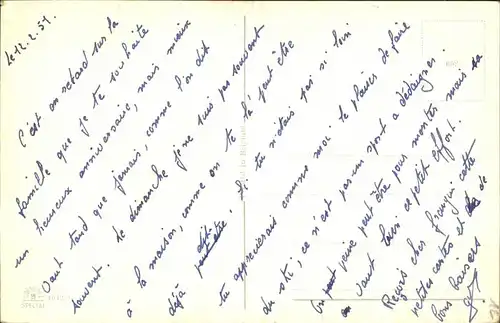 Le 12.2.51.
C'est en retard sur la
famille que je te souhaite
un heureux anniversaire, mais mieux
vaut tard que jamais, comme l'on dit
souvent. Le dimanche je ne suis pas souvent
à la maison, comme on te l'a peut être
déjà dit. Si tu n'étais pas si loin
tu apprécierais comme moi le plaisir de faire
du ski, ce n'est pas un sport à dédaigner.
Un peu peine peut être pour monter mais ça
en vaut bien ce petit effort.
Reçois cher François cette
petite carte et de
bons baisers
SPECIAL